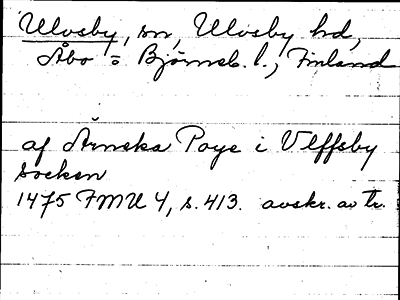 Ulvsby, sn, Ulvsby hd,
Åbo = Björneb. l., Finland
af Ärnska Poys i Vlffsby
socken
1475 FMU 4, s. 413. avskr. av tr.